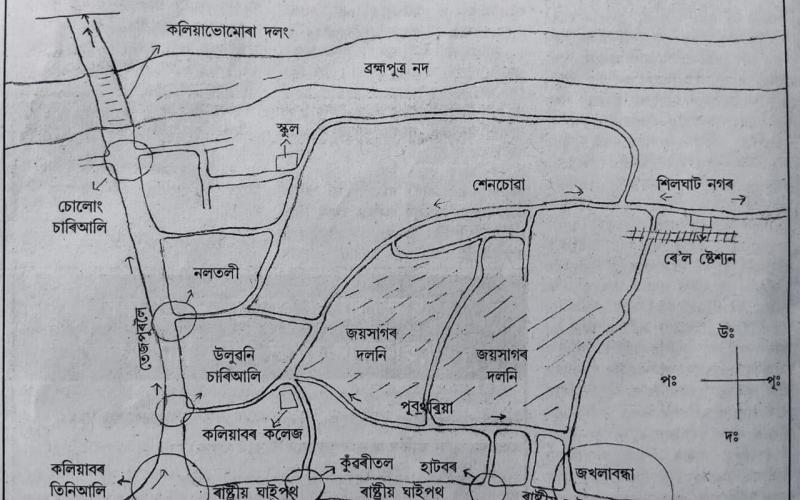 কলিয়াভোমোৰা দলং
ব্ৰহ্মপুত্ৰ নদ
স্কুল
শেনচোৱা
শিলঘাট নগৰ
চোলোং
চাৰিআলি
ৰে'ল ষ্টেশ্যন
নলতলী
তেজপুৰলৈ
জয়সাগৰ
দলনি
উলুৱনি
চাৰিআলি
জয়সাগৰ
দলনি
উঃ
পঃ
পূঃ
দঃ
পূবথৰিয়া
কলিয়াবৰ কলেজ
কলিয়াবৰ
তিনিআলি
কুঁৱৰীতল
হাটবৰ
জখলাবন্ধা
ৰাষ্ট্ৰীয় ঘাইপথ
ৰাষ্ট্ৰীয় ঘাইপথ
ৰাষ্ট্ৰীয়